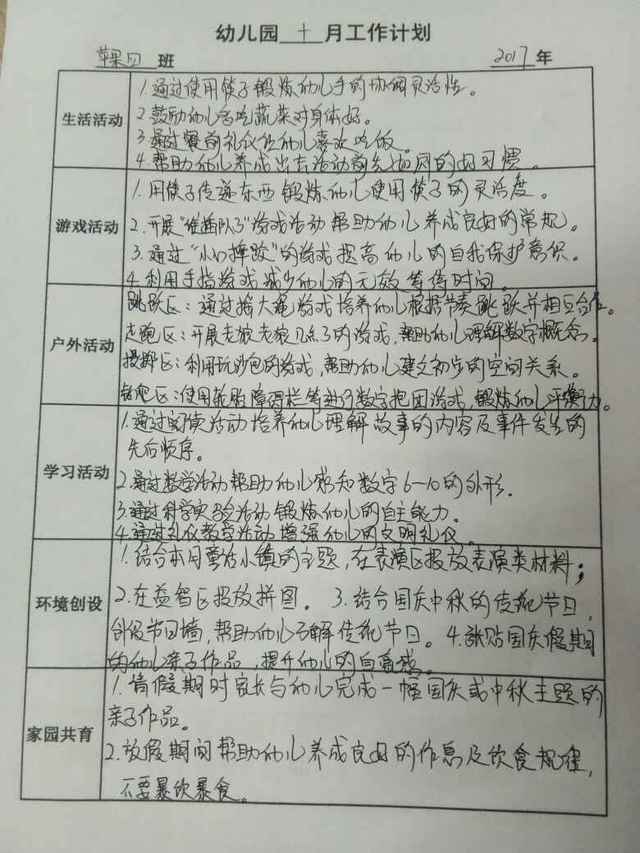 幼儿园 十 月工作计划
苹果四 班 2017 年
生活活动
1.通过使用筷子锻炼幼儿手的协调灵活性。
2.鼓励幼儿多吃蔬菜对身体好。
3.通过餐前礼仪使幼儿喜欢吃饭。
4.帮助幼儿养成出去活动前去厕所的好习惯。
游戏活动
1.用筷子传递东西锻炼幼儿使用筷子的灵活度。
2.开展"谁插队了"游戏活动帮助幼儿养成良好的常规。
3.通过"小心摔跤"的游戏提高幼儿的自我保护意识。
4.利用手指游戏减少幼儿的无效等待时间。
户外活动
跳跃区:通过摇大绳游戏培养幼儿根据节奏跳跃并相互合作。
走跑区:开展老狼老狼几点了的游戏,帮助幼儿理解数字概念。
投掷区:利用玩沙包的游戏,帮助幼儿建立初步的空间关系。
钻爬区:使用轮胎障碍栏等进行数字抱团游戏,锻炼幼儿平衡力。
学习活动
1.通过阅读活动培养幼儿理解故事的内容及事件发生的
先后顺序。
2.通过数学活动帮助幼儿感知数字6-10的外形.
3.通过科学实验活动锻炼幼儿的自主能力。
4.通过礼仪教学活动增强幼儿的文明礼仪。
环境创设
1.结合本月的主题,在表演区投放表演类材料;
2.在益智区投放拼图。 3.结合国庆中秋的传统节日,
创设节日墙,帮助幼儿了解传统节日。4.张贴国庆假期
的幼儿亲子作品,提升幼儿的自豪感。
家园共育
1.请假期时家长与幼儿完成一幅国庆或中秋主题的
亲子作品。
2.放假期间帮助幼儿养成良好的作息及饮食规律,
不要暴饮暴食。